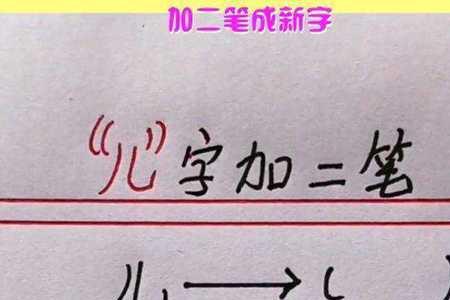 加二笔成新字
“儿”字加二笔
儿